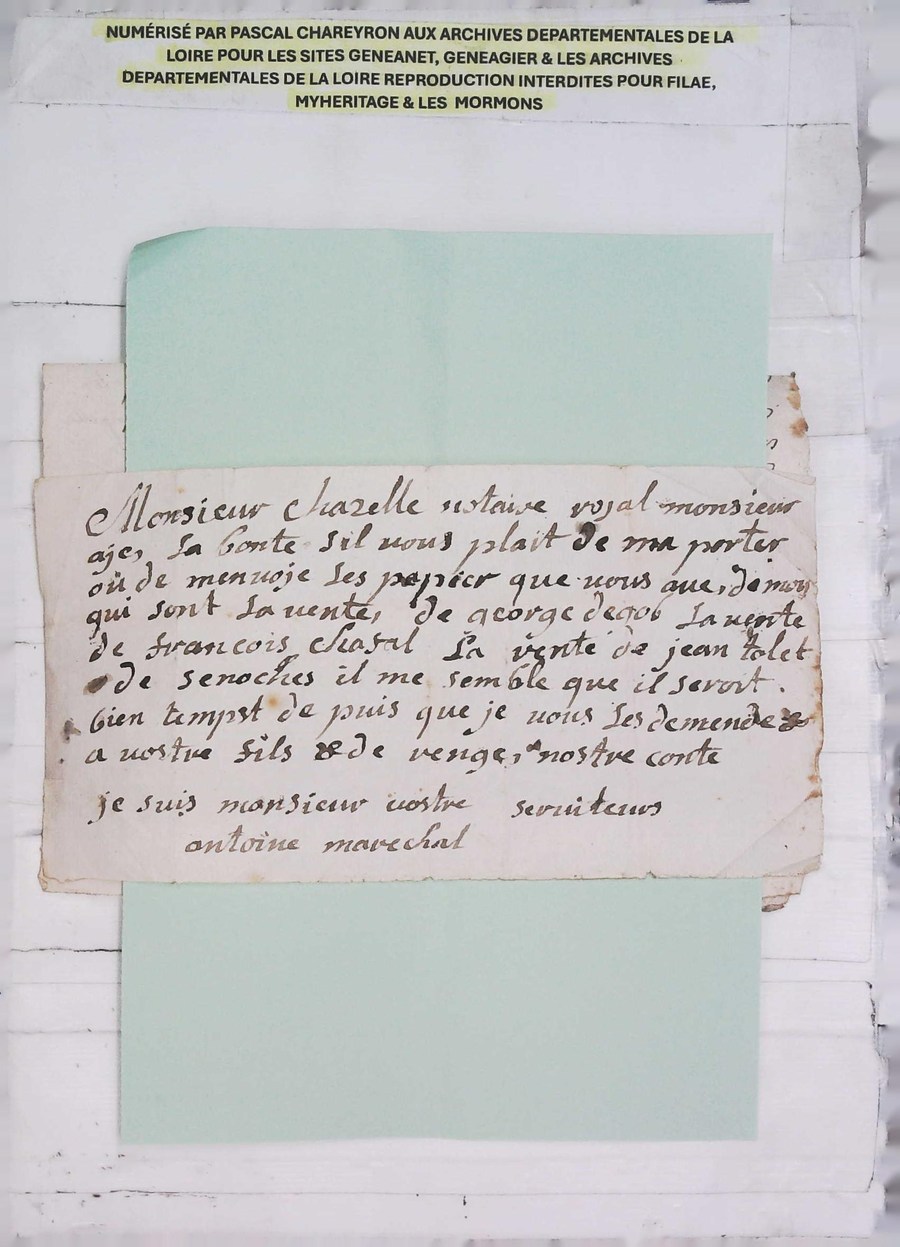 NUMÉRISÉ PAR PASCAL CHAREYRON AUX ARCHIVES DEPARTEMENTALES DE LA
LOIRE POUR LES SITES GENEANET, GENEAGIER & LES ARCHIVES
DEPARTEMENTALES DE LA LOIRE REPRODUCTION INTERDITES POUR FILAE,
MYHERITAGE & LES MORMONS
Monsieur chazelle notaire rojal monsieur
aje, La bonte sil vous plait de ma porter
oü de menvoje Les papier que vous ave, de moy
qui sont La vente, de george degot La vente
de francois chasal La vente de jean tolet
de senoches il me semble que il seroit
bien tempst de puis que je vous Les demende &
a vostre fils & de renge, nostre conte
je suis monsieur vostre serviteurs
antoine marechal